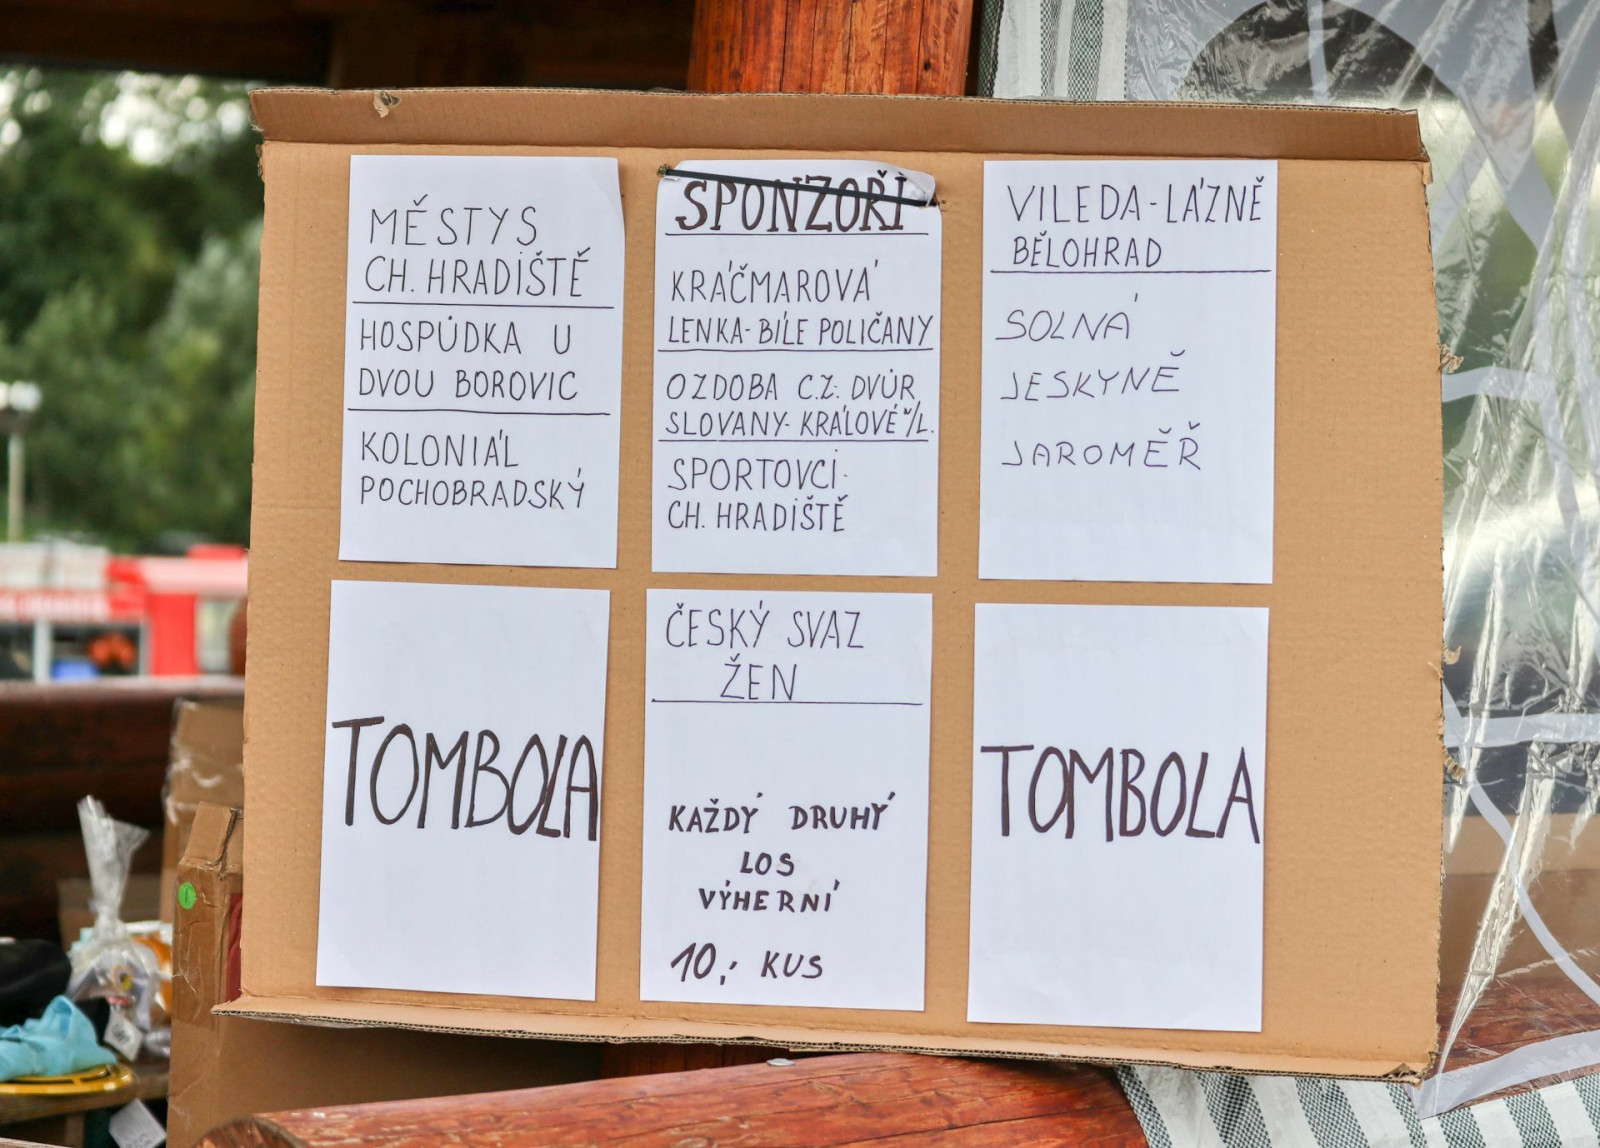 MĚSTYS
CH. HRADIŠTĚ
HOSPŮDKA U
DVOU BOROVIC
KOLONIÁL
POCHOBRADSKÝ
SPONZOŘI
KRÁČMAROVÁ
LENKA-BÍLÉ POLIČANY
OZDOBA C.Z: DVŮR
SLOVANY- KRÁLOVÉ N/L.
SPORTOVCI-
CH. HRADIŠTĚ
VILEDA-LÁZNĚ
BĚLOHRAD
SOLNÁ
JESKYNĚ
JAROMĚŘ
TOMBOLA
ČESKÝ SVAZ
ŽEN
KAŽDÝ DRUHÝ
LOS
VÝHERNÍ
10,- KUS
TOMBOLA